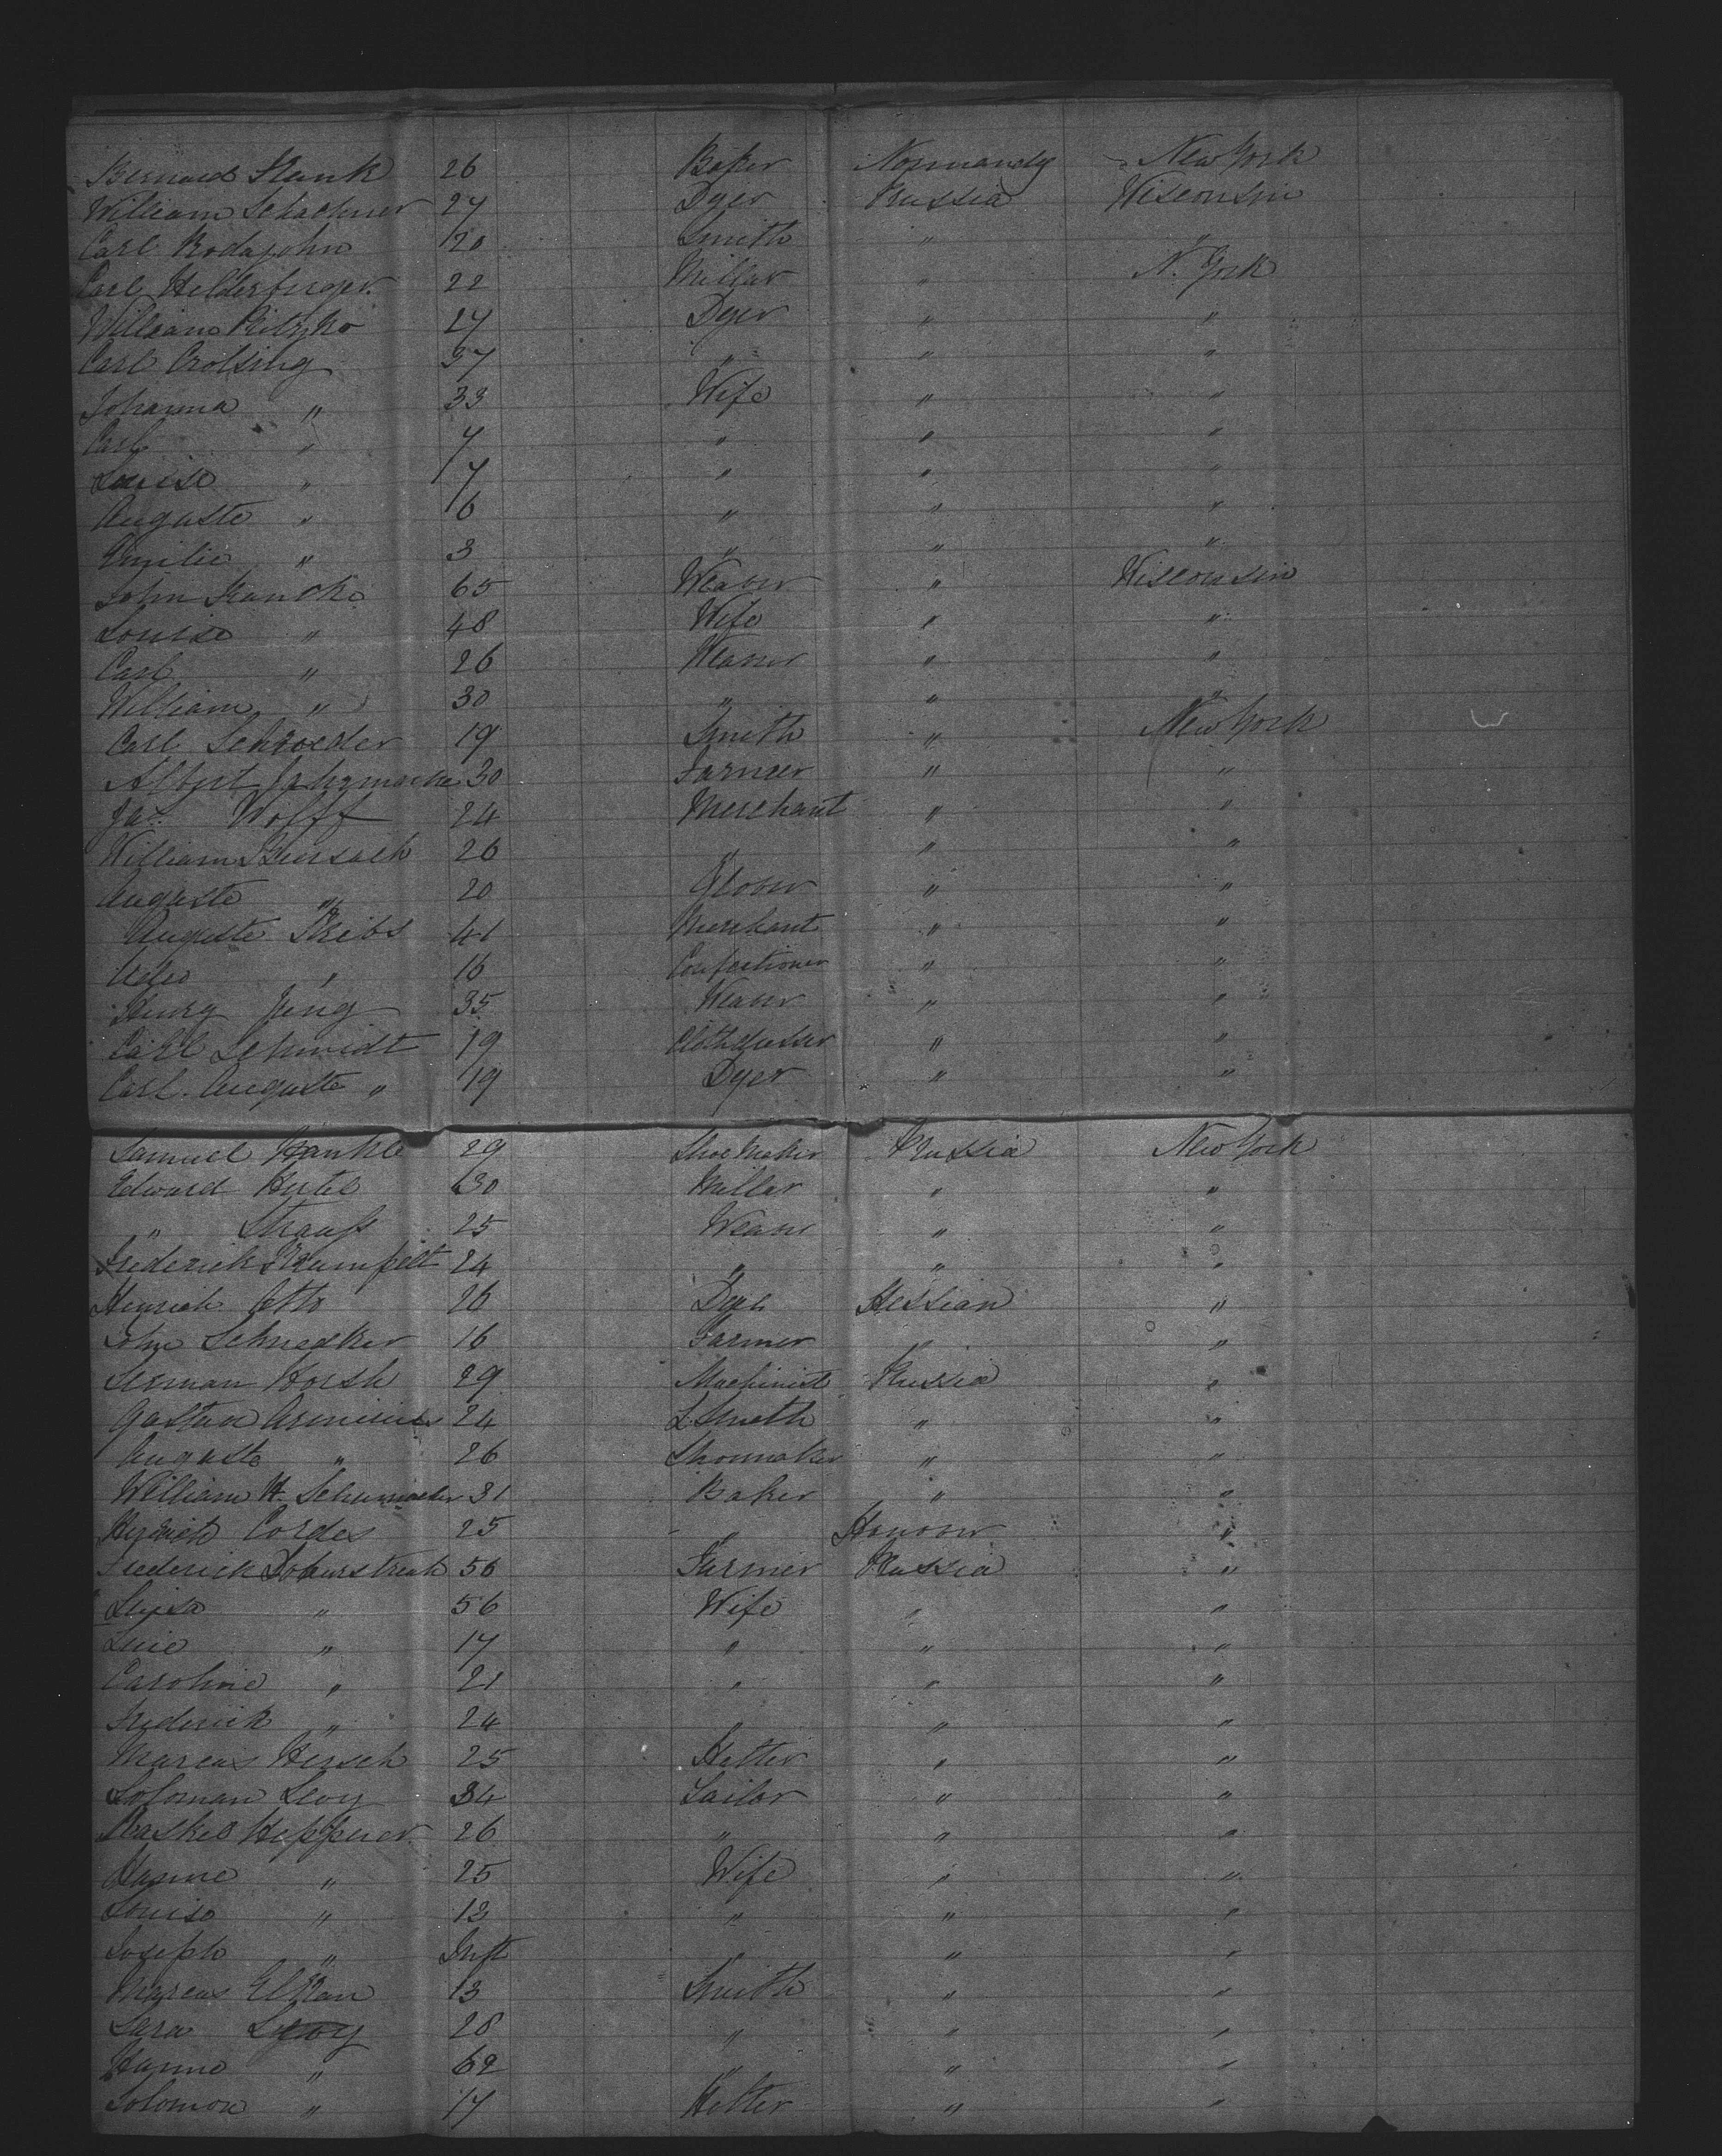 Bernard Stank 26 Baker Normandy New York
William Schachner 27 Dyer Prussia Wisconsin
Carl Rodajohn 20 Smith " "
Carl Helderberger 22 Millar " N. York
William 27 Dyer " "
Carl Crolsing 37 " " "
Johanna " 33 Wife " "
Carl " 7 " " "
Louise " 7 " " "
Auguste " 6 " " "
Emilie " 3 " " "
John 65 Weaver " Wisconsin
Louise " 48 Wife " "
Carl " 26 Weaver " "
William " 30 " " "
Carl Schroeder 19 Smith " New York
Albert 30 Farmer " "
Jas. Wolff 24 Merchant " "
William 26 " " "
Auguste " 20 Glover " "
Auguste Kribs 41 Merchant " "
" 16 Confectioner " "
Henry Jung 35 Weaver " "
Carl Schmidt 19 Clothdresser " "
Carl Auguste " 19 Dyer " "
Samuel Hankle 29 Shoe Maker Prussia New York
Edward Hertel 30 Millar " "
" Strauss 25 Weaver " "
Frederick Krumpelt 24 " " "
Heinrich Otto 26 Dyer Hessian "
John Schneaker 16 Farmer " "
Herman Horsh 29 Machinist Prussia "
Gastan Arminius 24 L. Smith " "
Auguste " 26 Shoemaker " "
William H. Schumacher 31 Baker " "
Heinrich Cordes 25 " Hanover "
Frederick 56 Farmer Prussia "
" 56 Wife " "
" 17 " " "
Caroline " 21 " " "
Frederick " 24 " " "
Marcus Hersch 25 Hatter " "
Soloman Levy 34 Tailor " "
Heppner 26 " " "
Hanne " 25 Wife " "
Louise " 13 " " "
Joseph " Inft " " "
Marcus Elkan 13 Smith " "
Sara Levy 28 " " "
Hanne " 62 " " "
Solomon " 17 Hatter " "